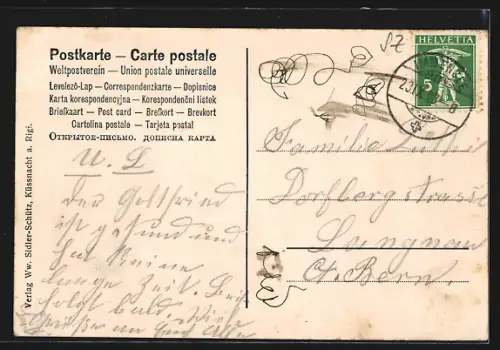 Postkarte — Carte postale
Weltpostverein — Union postale universelle
Levelező-Lap — Correspondenzkarte — Dopisnice
Karta korespondencyjna — Korespondenční lístek
Briefkaart — Post card — Brefkort — Brevkort
Cartolina postale — Tarjeta postal
Открытое-письмо. дописна карта
Verlag Ww. Sidler-Schütz, Küssnacht a. Rigi.
HELVETIA
5
8
SZ
U. L
Der Gottfried
ist gesund und
hat keine
lange Zeit.
folgt bald.
Grüsse an
Familie
Dorfbergstrasse
Langnau
Ct. Bern.